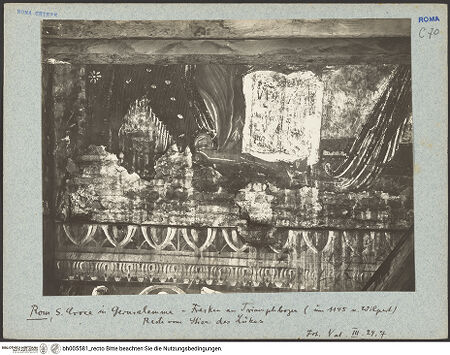 ROMA CHIESE
ROMA
C 70
Rom, S. Croce in Gerusalemme - Fresken am Triumphbogen (um 1145 n. Wilpert)
Rest vom Stier des Lukas
Fot. Vat. III. 29, 7
bh005581_recto Bitte beachten Sie die Nutzungsbedingungen.